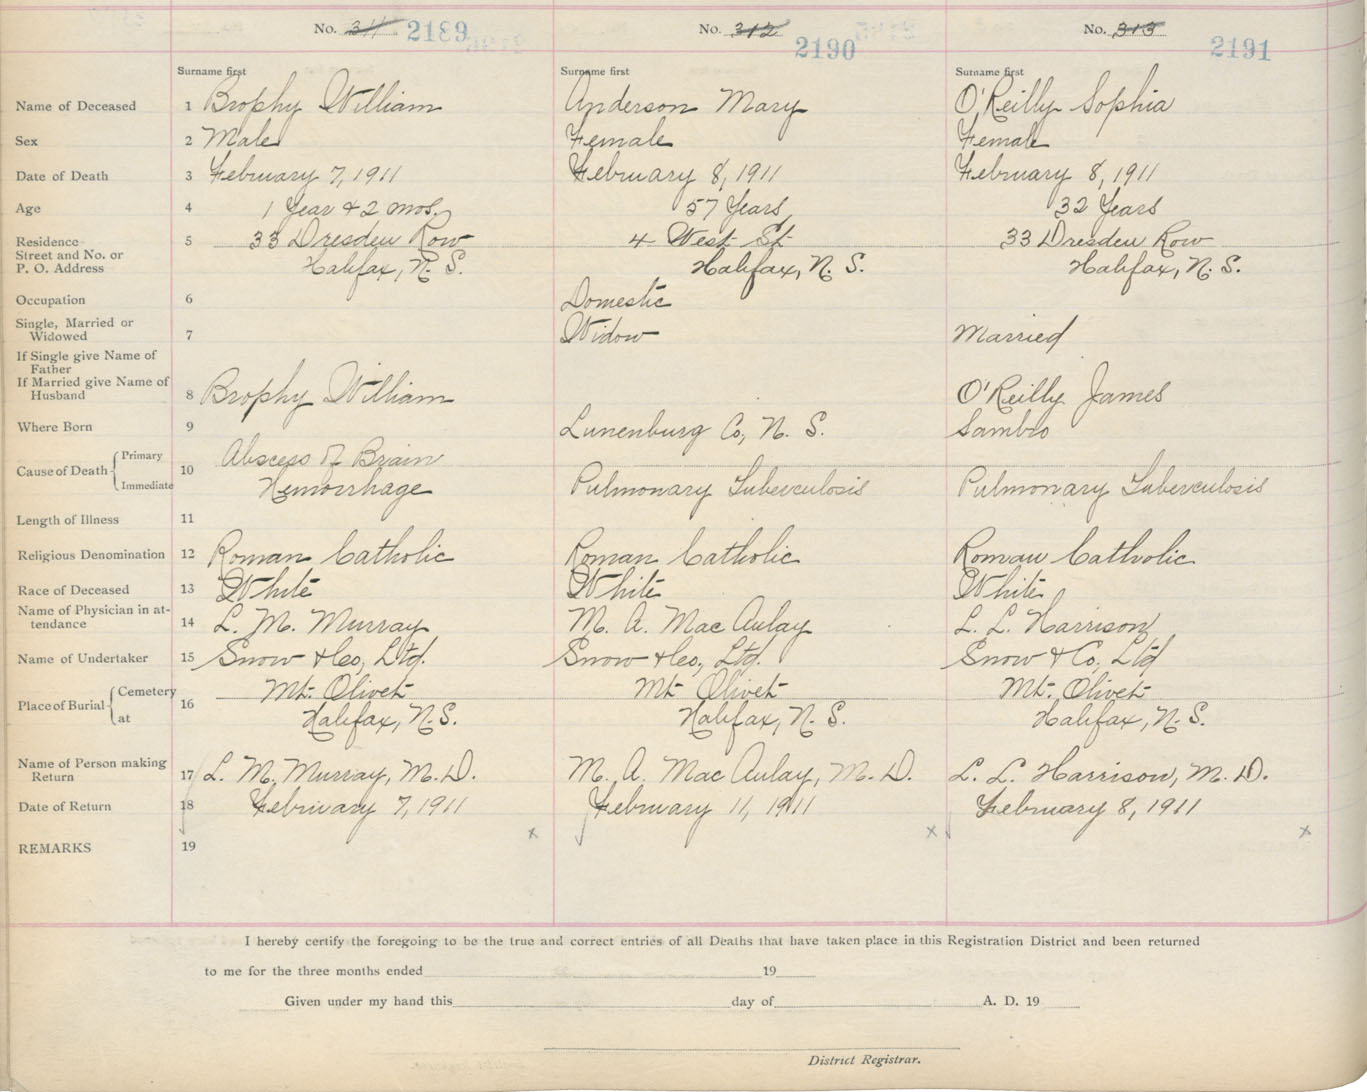 No. 311 2189 No. 312 2190 No. 313 2191
Surname first Surname first Surname first
Name of Deceased 1 Brophy William Anderson Mary O'Reilly Sophia
Sex 2 Male Female Female
Date of Death 3 February 7, 1911 February 8, 1911 February 8, 1911
Age 4 1 Year & 2 mos. 57 Years 32 Years
Residence 5 33 Dresden Row 4 West St. 33 Dresden Row
Street and No. or
P. O. Address Halifax, N. S. Halifax, N. S. Halifax, N. S.
Occupation 6 Domestic
Single, Married or
Widowed 7 Widow Married
If Single give Name of
Father
If Married give Name of
Husband 8 Brophy William O'Reilly James
Where Born 9 Lunenburg Co, N. S. Sambro
Cause of Death Primary 10 Abscess of Brain
Immediate Hemorrhage Pulmonary Tuberculosis Pulmonary Tuberculosis
Length of Illness 11
Religious Denomination 12 Roman Catholic Roman Catholic Roman Catholic
Race of Deceased 13 White White White
Name of Physician in at-
tendance 14 L. M. Murray M. A. MacAulay L. L. Harrison
Name of Undertaker 15 Snow & Co, Ltd. Snow & Co, Ltd. Snow & Co, Ltd
Place of Burial Cemetery 16 Mt. Olivet Mt Olivet Mt. Olivet
at Halifax, N. S. Halifax, N. S. Halifax, N. S.
Name of Person making
Return 17 L. M. Murray, M. D. M. A. MacAulay, M. D. L. L. Harrison, M. D.
Date of Return 18 February 7, 1911 February 11, 1911 February 8, 1911
x x x
REMARKS 19
I hereby certify the foregoing to be the true and correct entries of all Deaths that have taken place in this Registration District and been returned
to me for the three months ended 19
Given under my hand this day of A. D. 19
District Registrar.